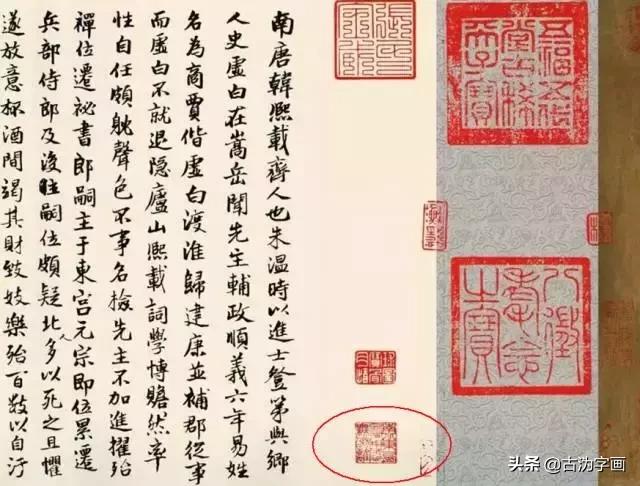 五福五代堂古稀天子寶
八徵耄念之寶
南唐韓熙載齊人也朱溫時以進士登第與鄉
人史虛白在嵩岳聞先主輔政順義六年易姓
名為商賈偕虛白渡淮歸建康並補郡從事
而虛白不就退隱廬山熙載詞學博贍然率
性自任頗耽聲色不事名檢先主不加進擢殆
禪位遷祕書郎嗣主于東宮元宗即位累遷
兵部侍郎及後主嗣位頗疑北人多以死之且懼
遂放意杯酒間竭其財致妓樂殆百數以自汙
头条 @古沩字画